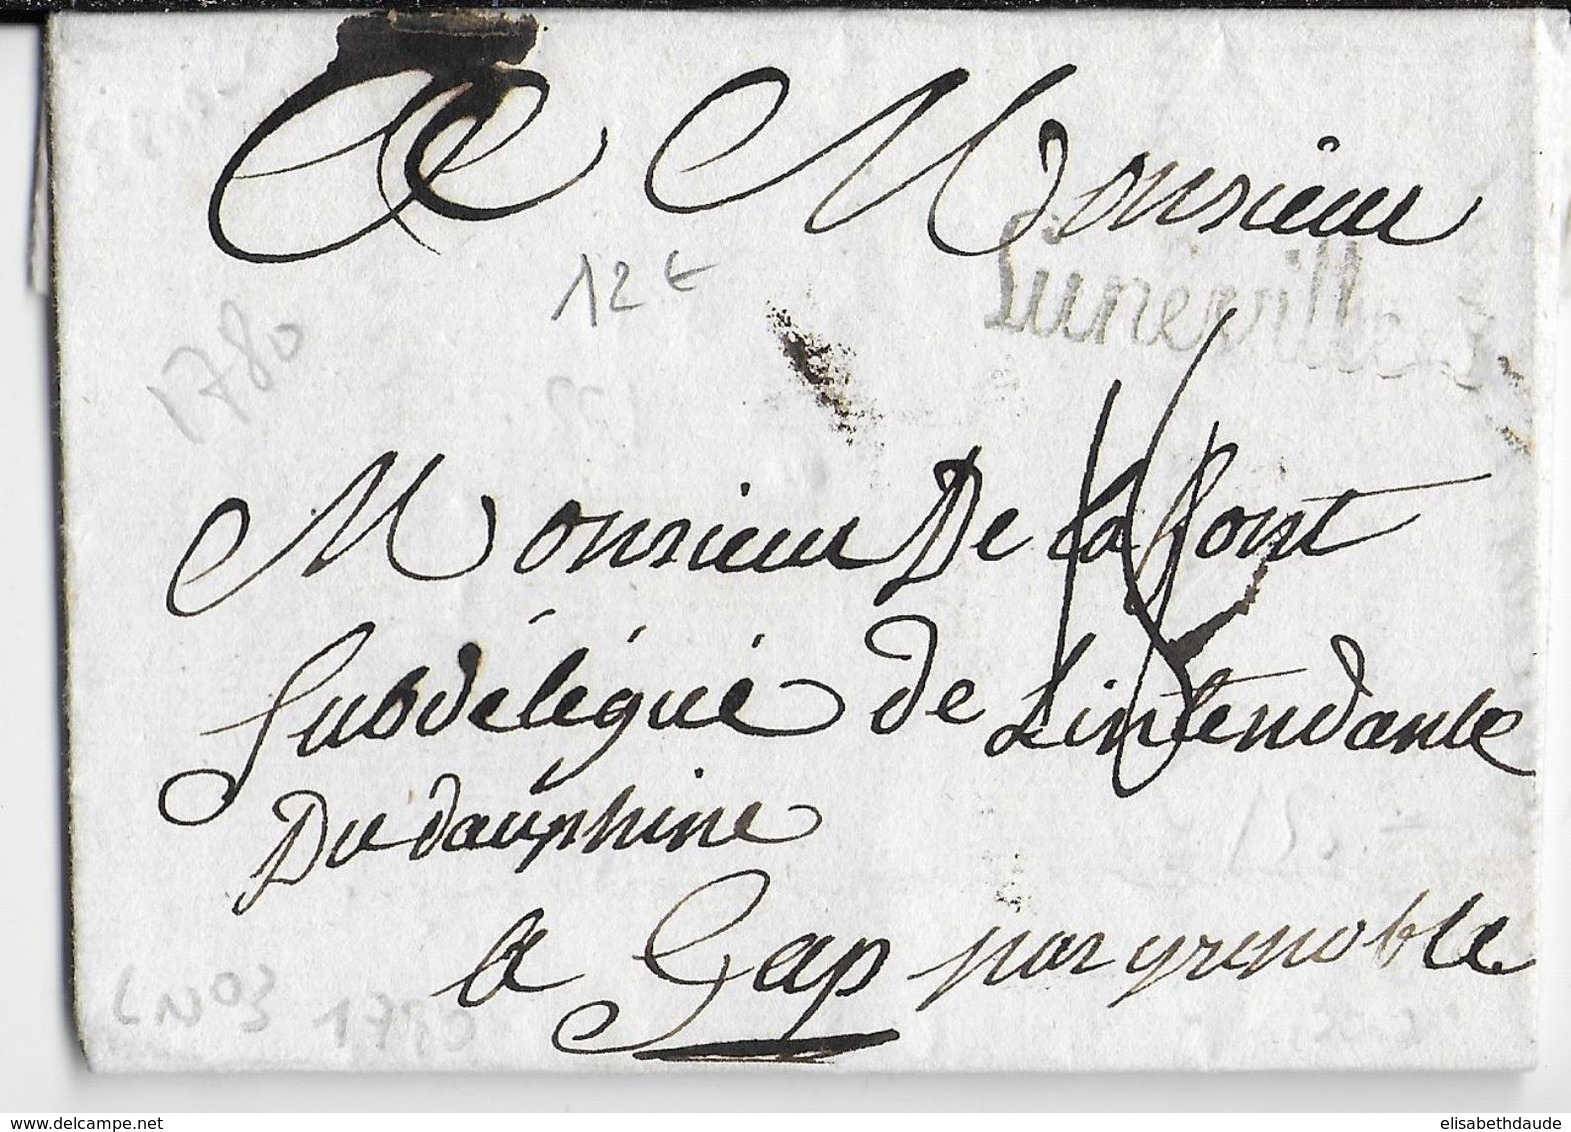 A Monsieur
Lunéville
12 €
1780
Monsieur De la font
Subdélégué de Lintendante
Du dauphine
a Gap par grenoble
LN03 1780
elisabethdaude